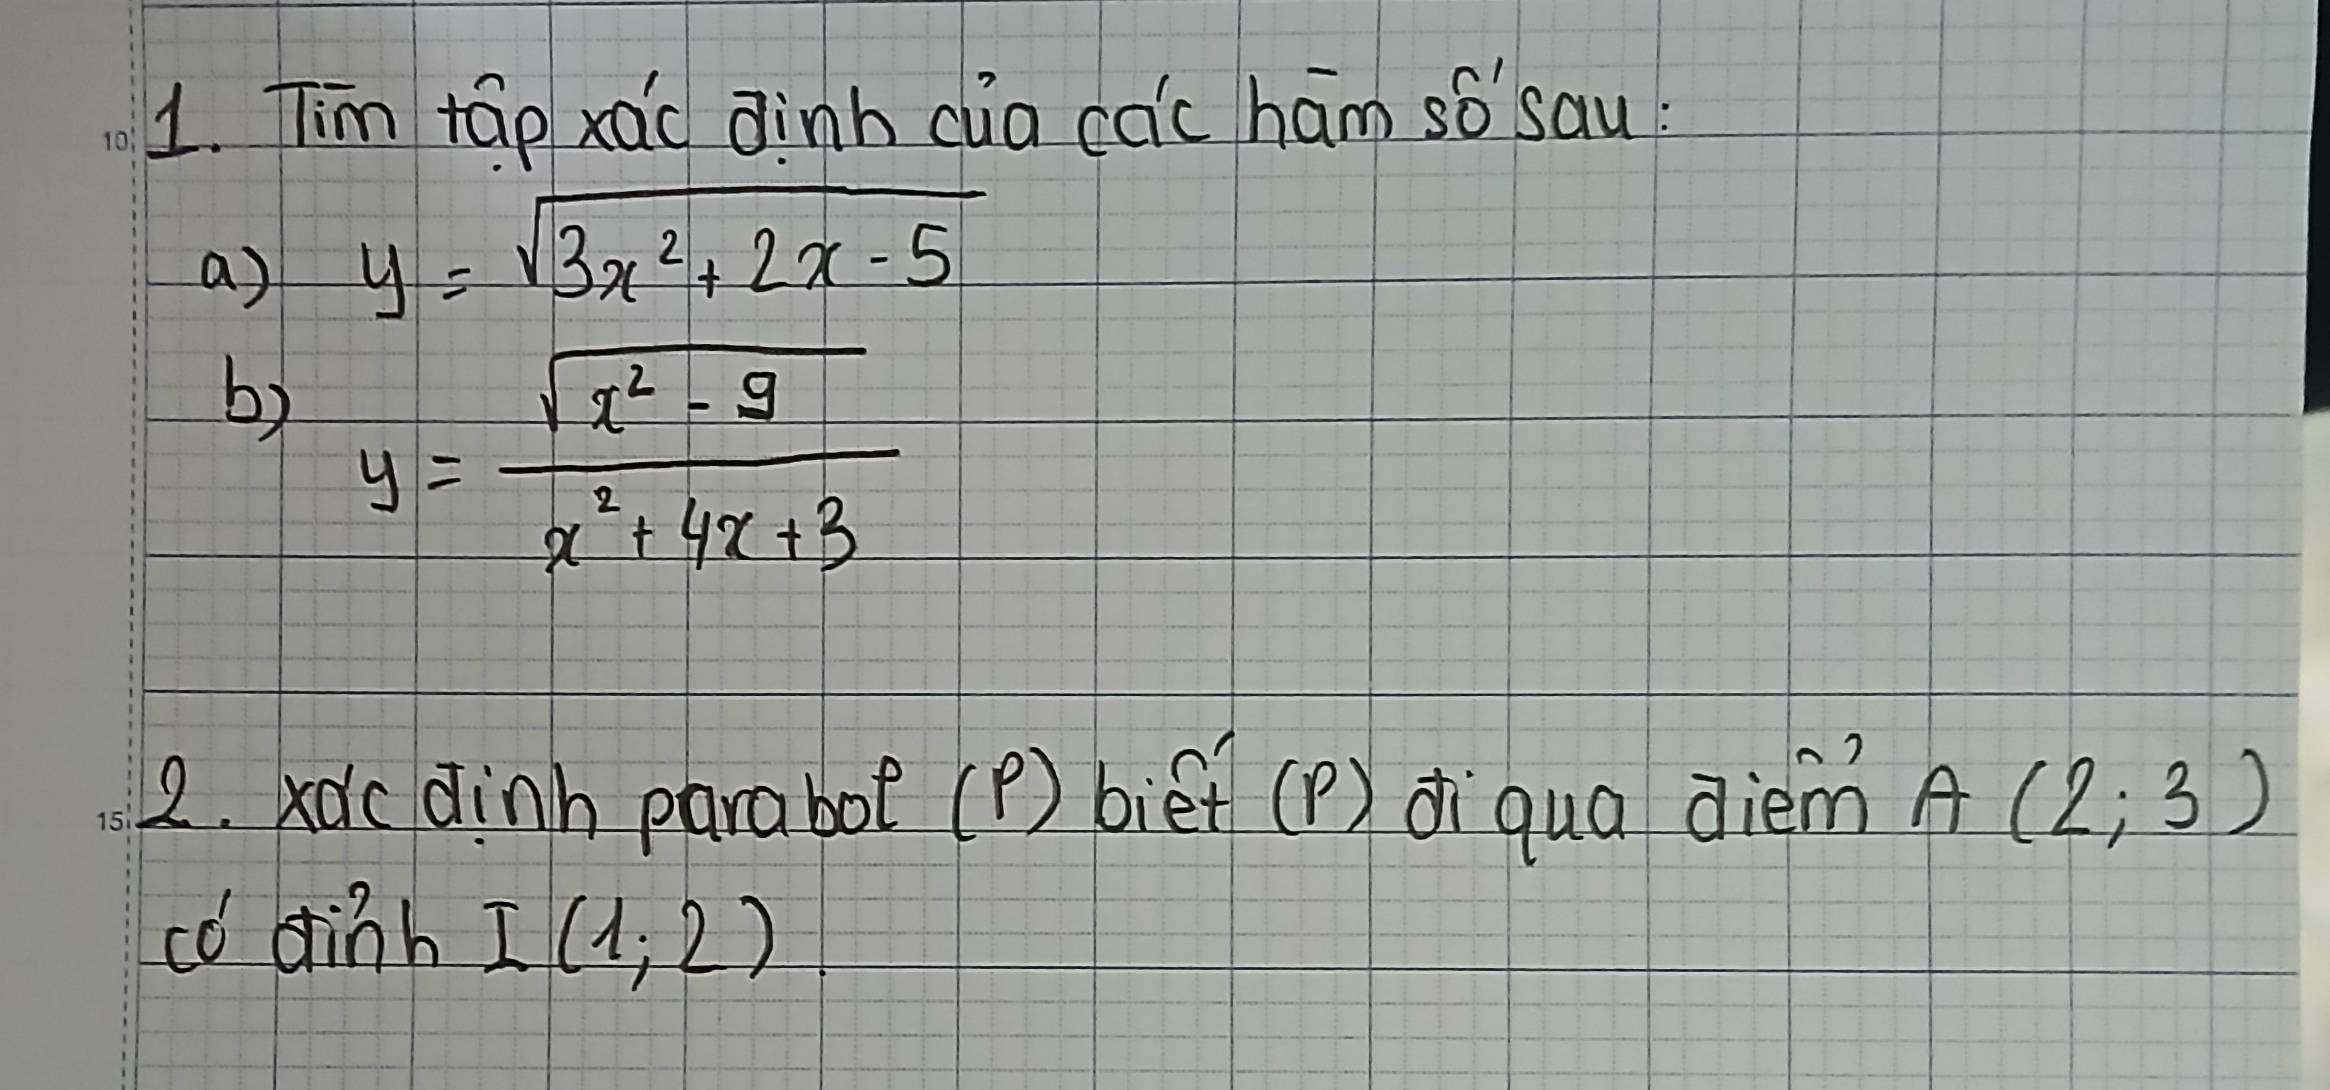 10 1. Tìm tập xác định của các hàm số sau:
a) y = √(3x² + 2x - 5)
b) y = √(x² - 9) / (x² + 4x + 3)
15 2. xác định parabol (P) biết (P) đi qua điểm A (2; 3)
có đỉnh I (1; 2).